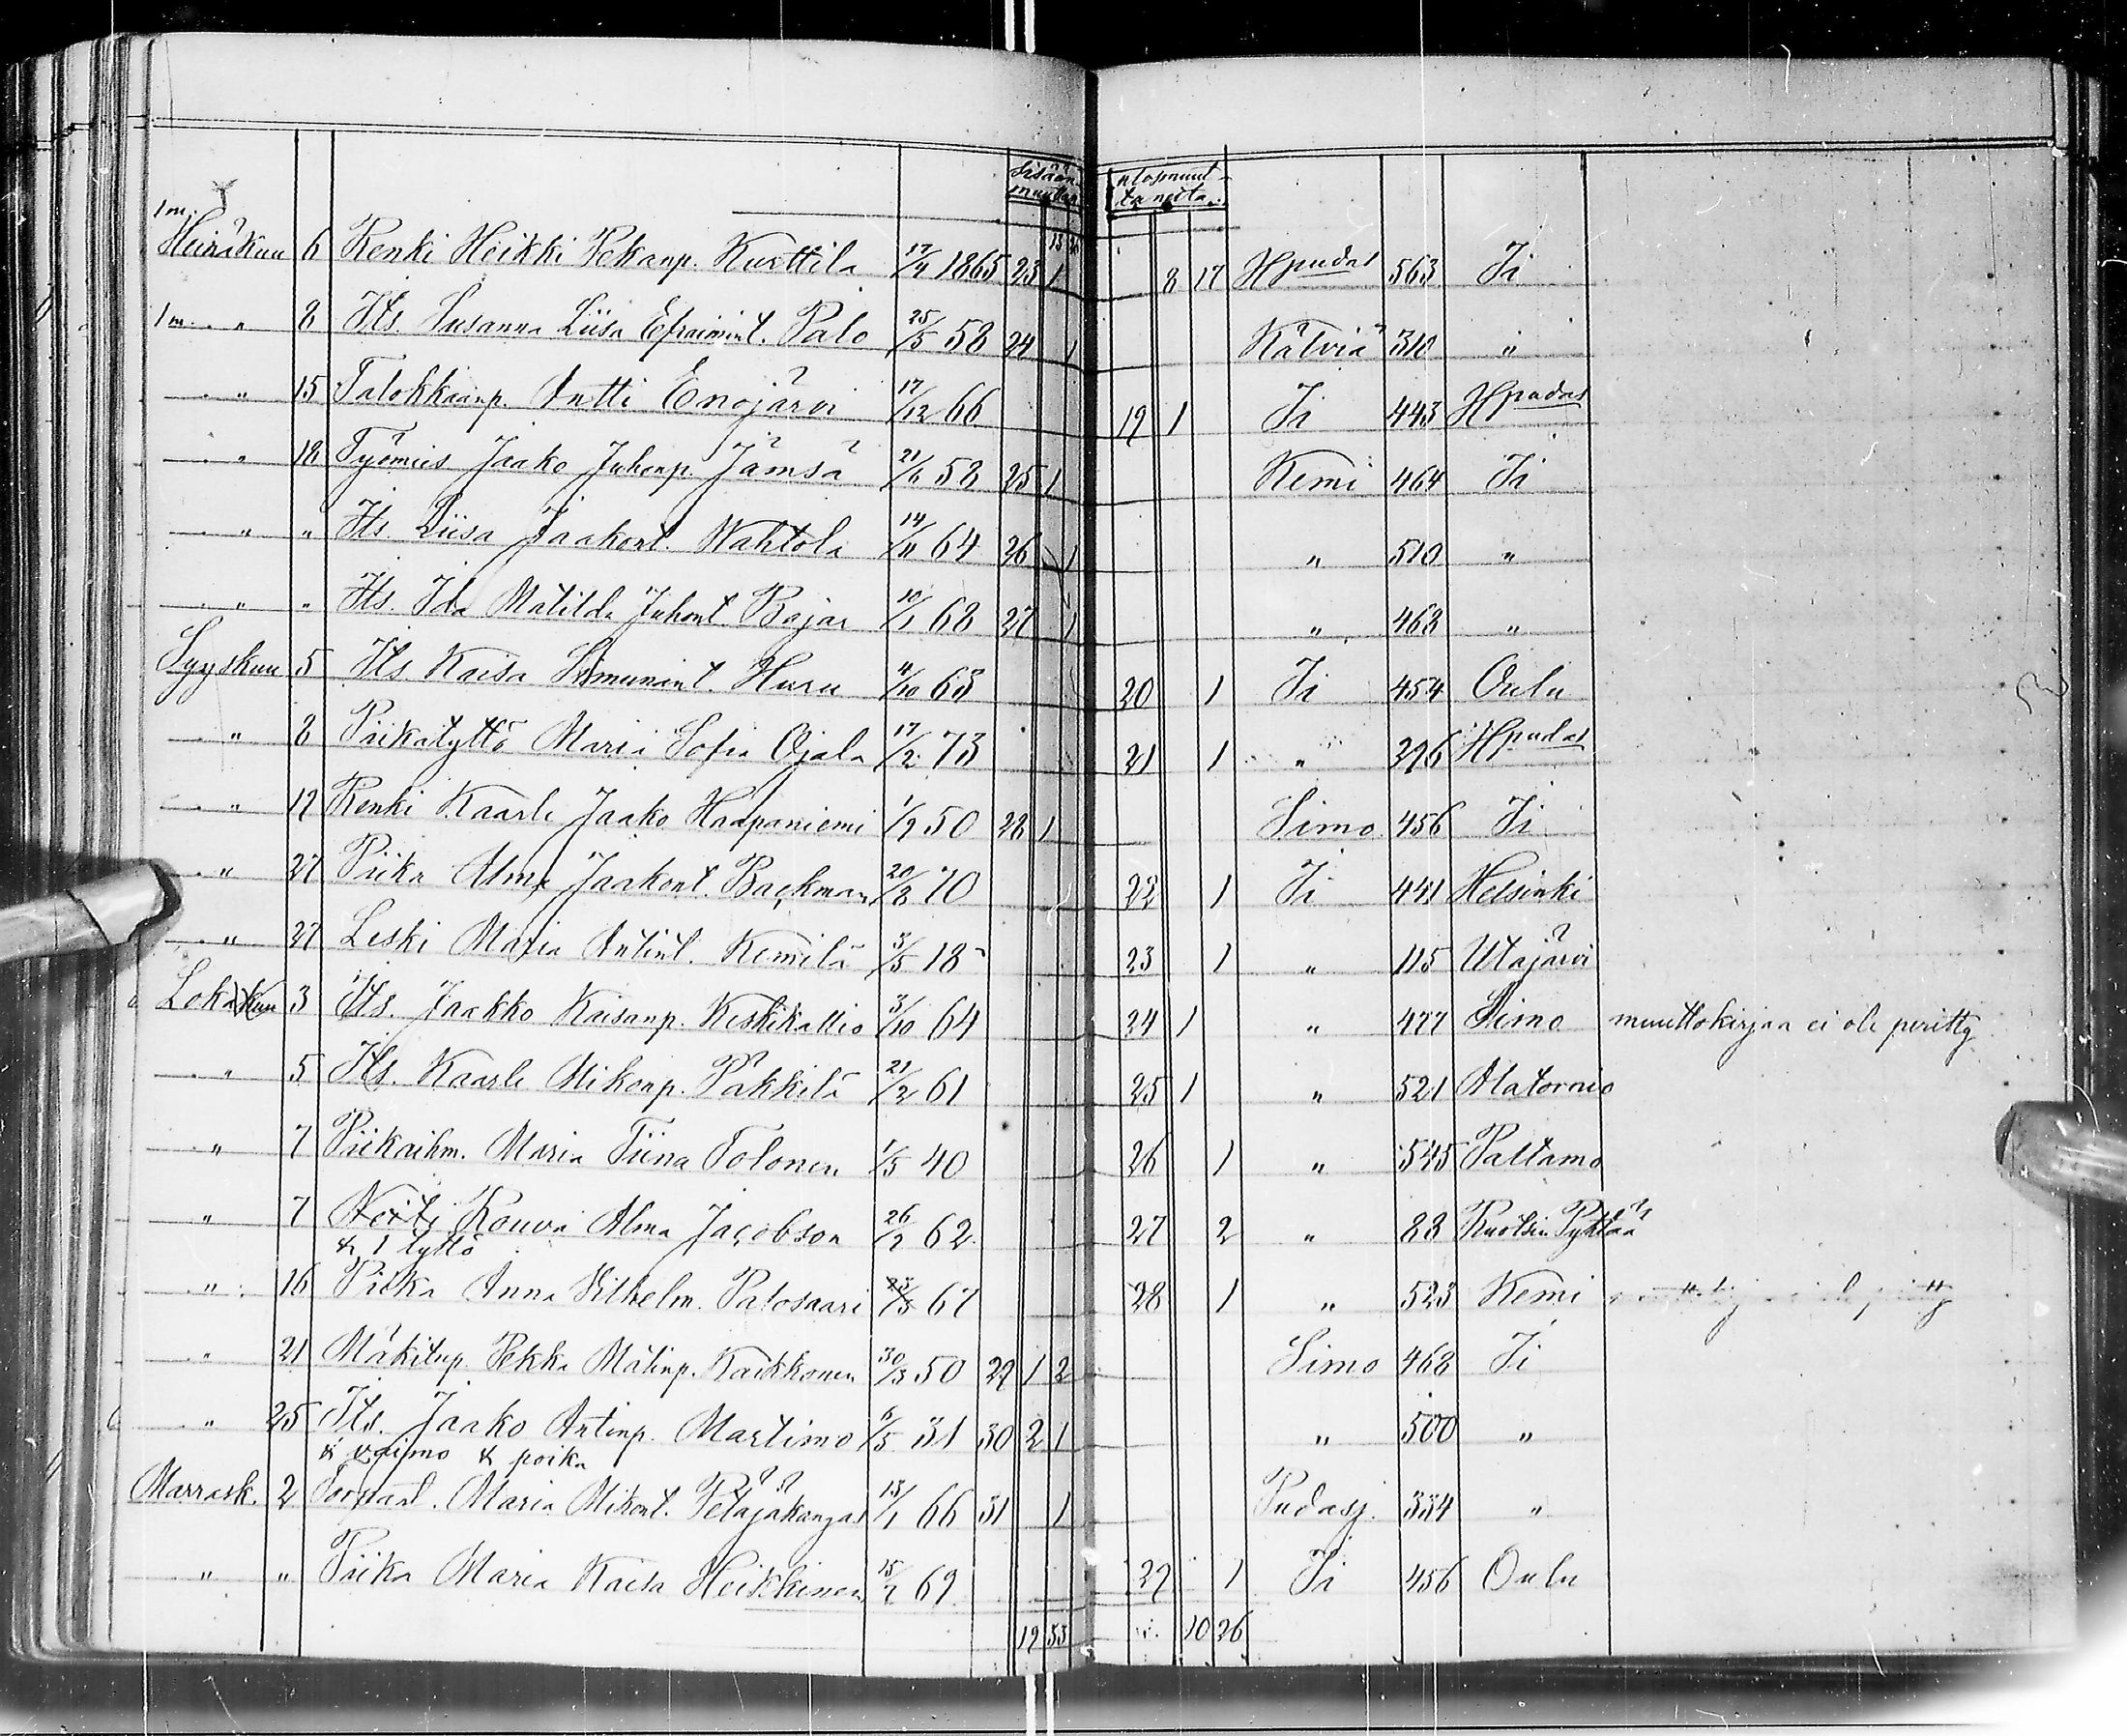 Sisään- muutta ulosmuut- taneita
13 20
1 m. Heinäkuu 6 Renki Heikki Pekanp. Kurttila 17/4 1865 23 1 8 17 Hpudas 563 Ii
1 m. " 8 Its. Susanna Liisa Efraimint. Palo 25/5 58 24 1 Kälviä 310 "
" 15 Talokkaanp. Antti Enojärvi 17/12 66 19 1 Ii 443 Hpudas
" 18 Työmies Jaako Juhonp. Jämsä 21/6 58 25 1 Kemi 464 Ii
" " Its. Liisa Jaakont. Wahtola 14/11 64 26 1 " 510 "
" " Its. Ida Matilda Juhont. Bajar 10/1 68 27 1 " 468 "
Syyskuu 5 Its. Kaisa Simunint. Huru 4/10 63 20 1 Ii 454 Oulu
" 8 Piikatyttö Maria Sofia Ojala 17/2 73 21 1 " 296 Hpudas
" 19 Renki Kaarle Jaako Haapaniemi 1/9 50 28 1 Simo 456 Ii
" 27 Piika Alma Jaakont. Backman 20/8 70 22 1 Ii 441 Helsinki
" 27 Leski Maria Antint. Kemilä 3/5 18 23 1 " 115 Utajärvi
Lokakuu 3 Its. Jaakko Kaisanp. Keskikallio 3/10 64 24 1 " 477 Simo muuttokirjaa ei ole peritty
" 5 Its. Kaarle Mikonp. Pakkila 21/2 61 25 1 " 521 Alatornio
" 7 Piikaihm. Maria Tiina Tolonen 1/5 40 26 1 " 545 Paltamo
" 7 Neiti Rouva Alma Jacobson 26/2 62 27 2 " 88 Ruotsin Pyhtää
& 1 tyttö
" 16 Piika Anna Vilhelm. Palosaari 67 28 1 " 523 Kemi
" 21 Mäkitup. Pekka Matinp. Kaikkonen 30/3 50 29 1 2 Simo 468 Ii
" 25 Its. Jaako Antinp. Martimo 6/5 31 30 2 1 " 500 "
& vaimo & poika
Marrask. 2 Maria Mikont. Petäjäkangas 13/1 66 31 1 Pudasj. 334 "
" " Piika Maria Kaisa Heikkinen 15/2 69 29 1 Ii 456 Oulu
19 33 10 26